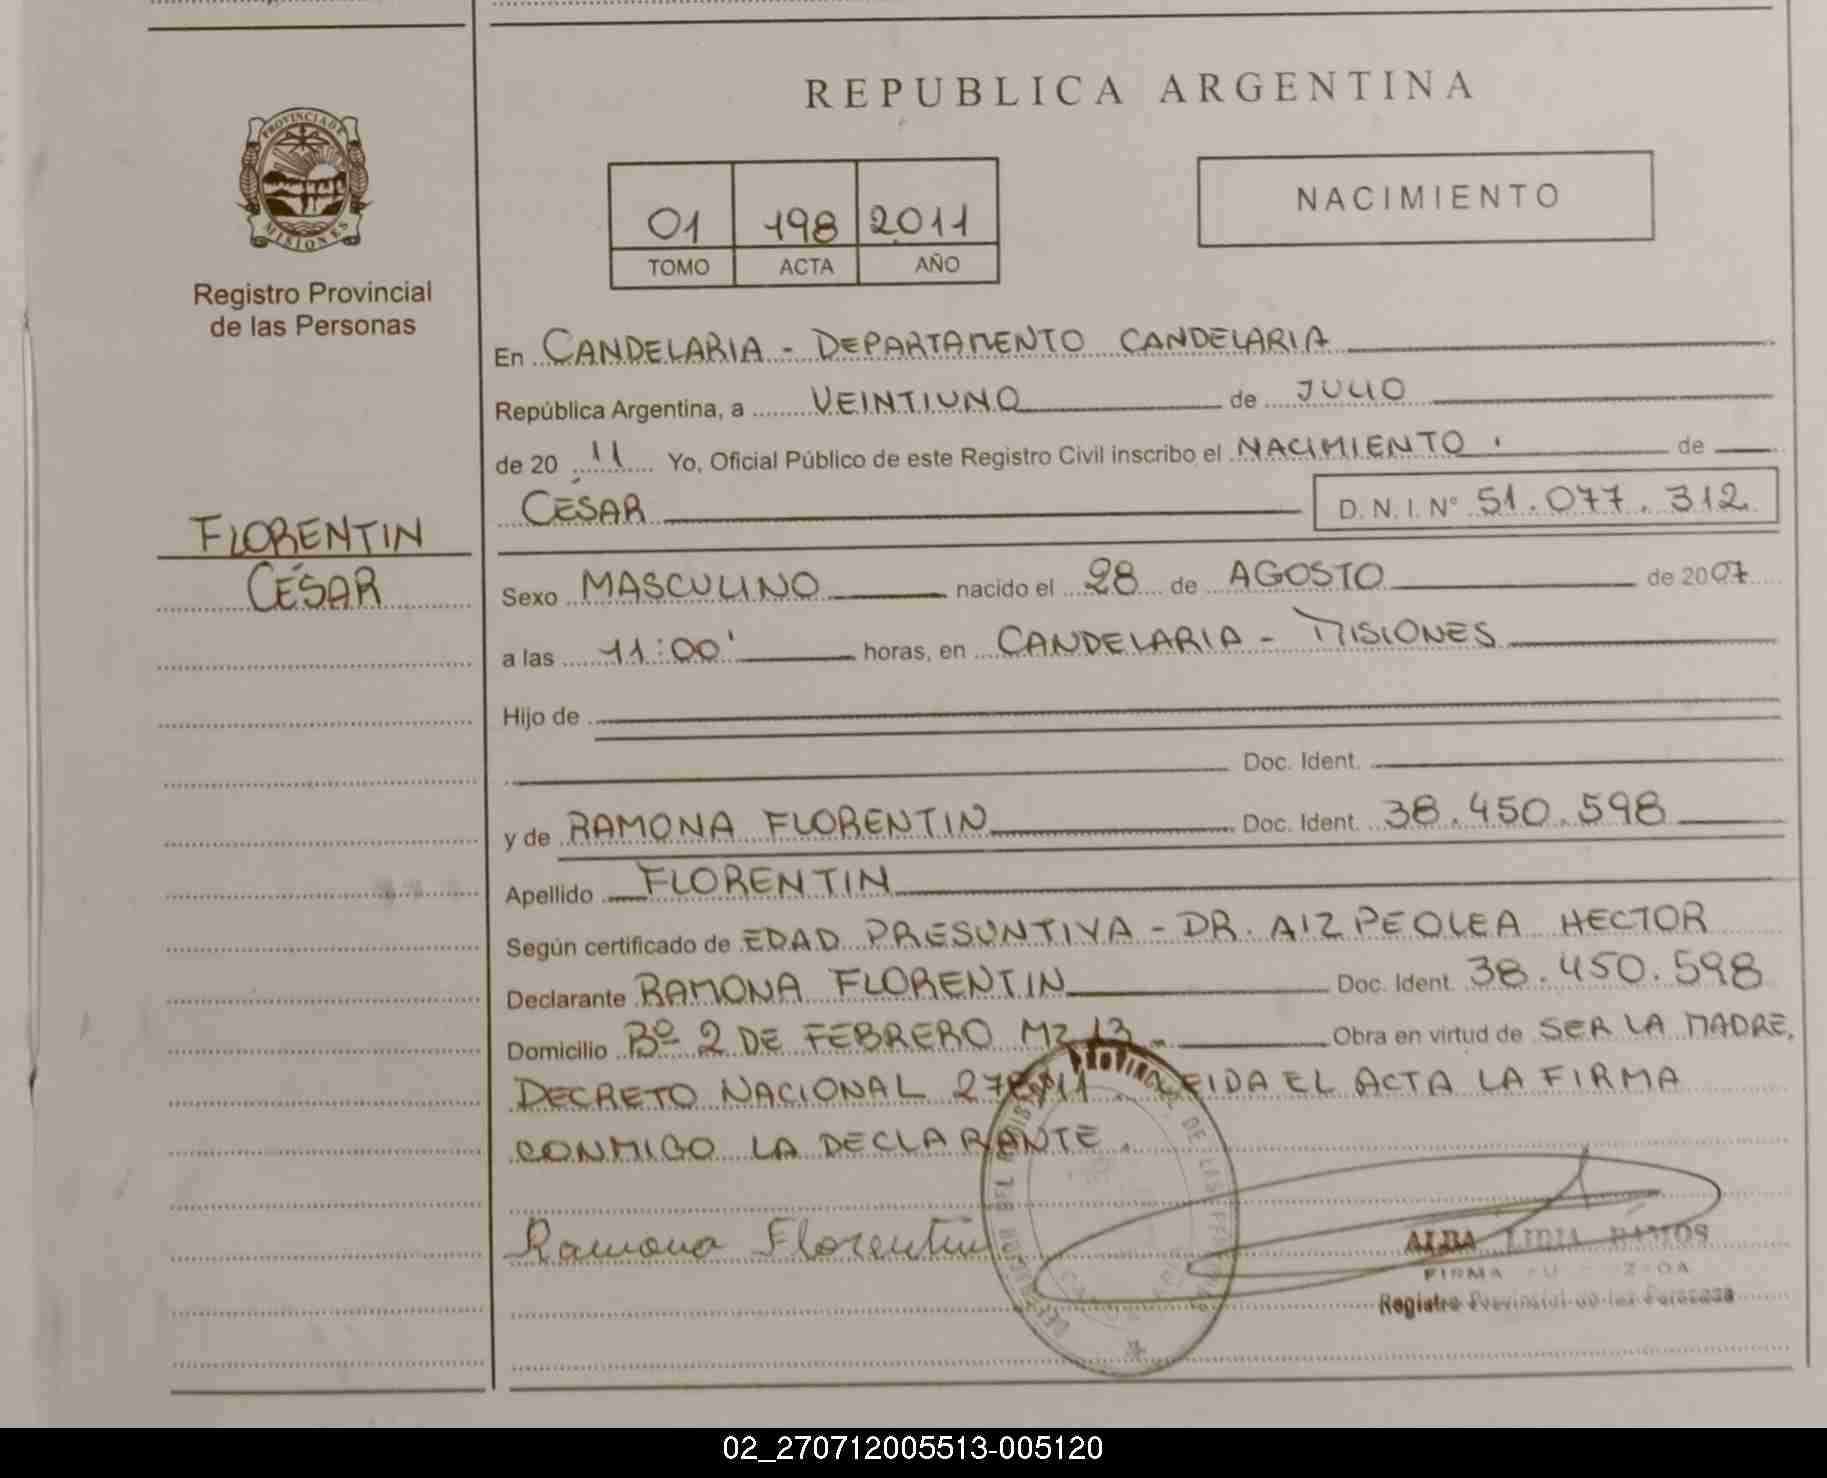 REPUBLICA ARGENTINA
PROVINCIA DE
MISIONES
Registro Provincial
de las Personas
01 198 2011
TOMO ACTA AÑO
NACIMIENTO
FLORENTIN
CÉSAR
En CANDELARIA - DEPARTAMENTO CANDELARIA
República Argentina, a VEINTIUNO de JULIO
de 20 11 Yo, Oficial Público de este Registro Civil inscribo el NACIMIENTO de
CÉSAR D.N.I. N° 51.077.312
Sexo MASCULINO nacido el 28 de AGOSTO de 2007
a las 11:00' horas, en CANDELARIA - MISIONES
Hijo de
Doc. Ident.
y de RAMONA FLORENTIN Doc. Ident. 38.450.598
Apellido FLORENTIN
Según certificado de EDAD PRESUNTIVA - DR. AIZPEOLEA HECTOR
Declarante RAMONA FLORENTIN Doc. Ident. 38.450.598
Domicilio Bº 2 DE FEBRERO MZ 13 - Obra en virtud de SER LA MADRE,
DECRETO NACIONAL LEIDA EL ACTA LA FIRMA
CONMIGO LA DECLARANTE.
Ramona Florentin
ALBA LIDIA RAMOS
FIRMA
Registro Provincial de las Personas
02_270712005513-005120